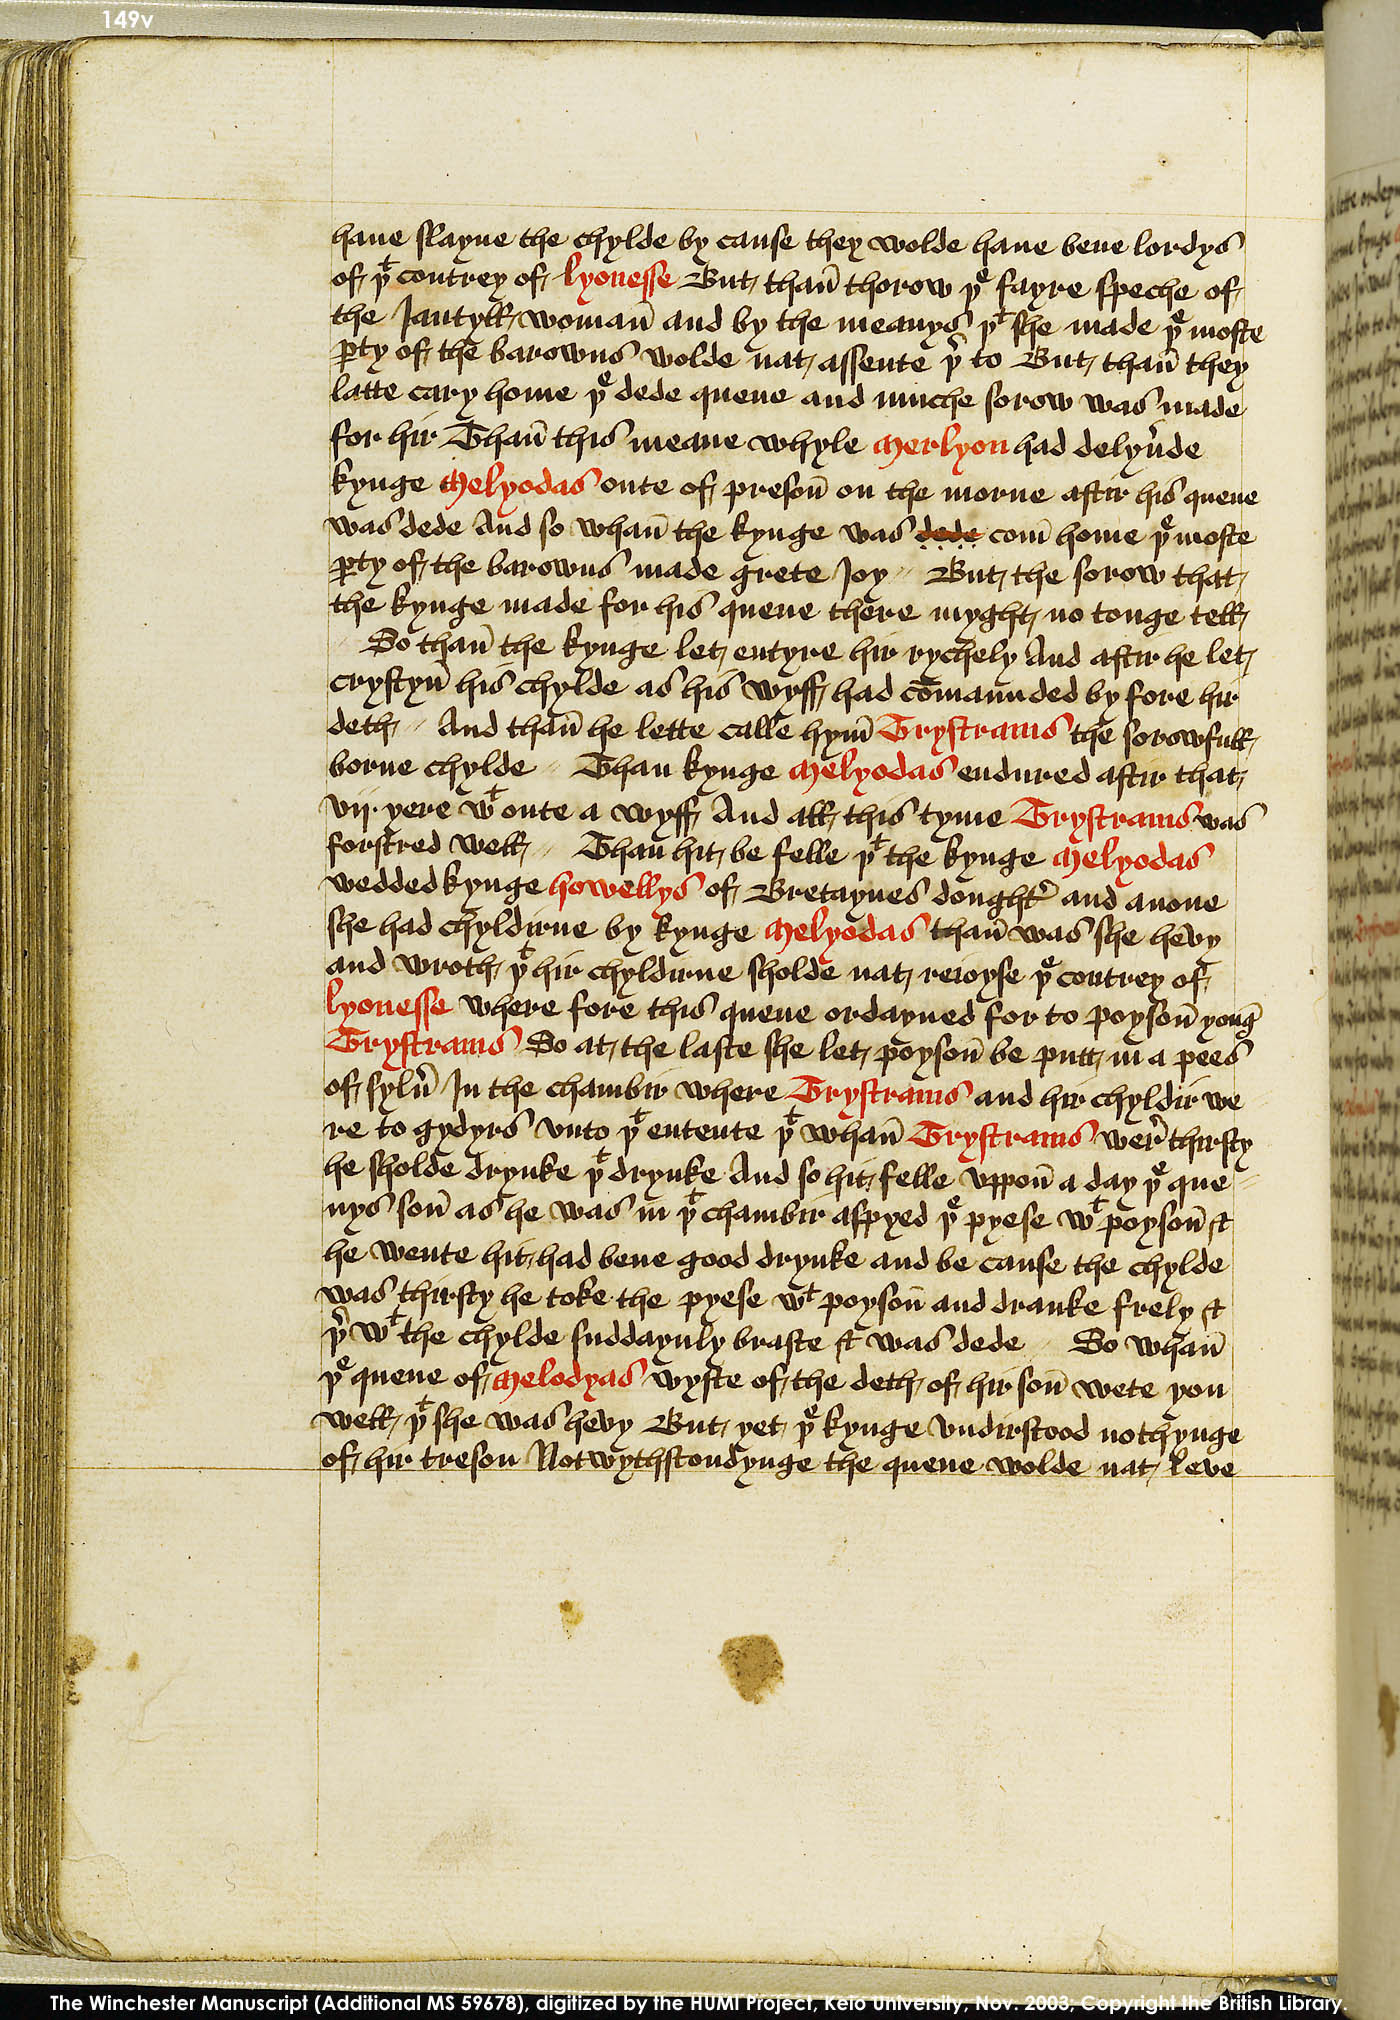 149v
haue slayne the chylde by cause they wolde haue bene lordys
of þͭ contrey of lyonesse But than̄ thorow þͤ fayre speche of
the Jantyll woman̄ and by the meanys þͭ she made þͤ moste
ꝑty of the barowns wolde nat assente þ̉ to But than̄ they
latte cary home þͤ dede quene and muche sorow was made
for hir Than̄ this meane whyle Merlyon had delyủde
kynge Melyodas oute of preson̄ on the morne aftir his quene
was dede And so whan̄ the kynge was dede com̄ home þͤ moste
ꝑty of the barowns made grete Joy〃 But the sorow that
the kynge made for his quene there myght no tonge tell
〃 So than̄ the kynge let entyre hir rychely And aftir he let
crystyn̄ his chylde as his wyff had com̄aunded by fore hir
deth〃 And than̄ he lette calle hym̄ Trystrams the sorowfull
borne chylde〃 Than kynge Melyodas endured aftir that
vij yere wͭ oute a wyff And all this tyme Trystrams was
forstred well〃 Than hit be felle þͭ the kynge Melyodas
wedded kynge howellys of Bretaynes doughtˀ and anone
she had chyldirne by kynge Melyodas than̄ was she hevy
and wroth þͭ hir chyldirne sholde nat reioyse þͤ contrey of
lyonesse where fore this quene ordayned for to poyson̄ yonḡ
Trystrams So at the laste she let poyson̄ be putt in a pees
of sylủ In the chambir where Trystrams and hir chyldir we
re to gydyrs vnto þͭ entente þͭ whan̄ Trystrams wer̉ thirsty
he sholde drynke þͭ drynke And so hit felle vppon̄ a day þͤ que〃
nys son̄ as he was in þͭ chambir aspyed þͤ pyese wͭ poyson̄ ⁊
he wente hit had bene good drynke and be cause the chylde
was thirsty he toke the pyese wͭ poyson̄ and dranke frely ⁊
þ̉ wͭ the chylde suddaynly braste ⁊ was dede〃 So whan̄
þͤ quene of Melodyas wyste of the deth of hir son̄ wete you
well þͭ she was hevy But yet þͤ kynge vndirstood nothynge
of hir treson Notwythstondynge the quene wolde nat leve
The Winchester Manuscript (Additional MS 59678), digitized by the HUMI Project, Keio University, Nov. 2003; Copyright the British Library.